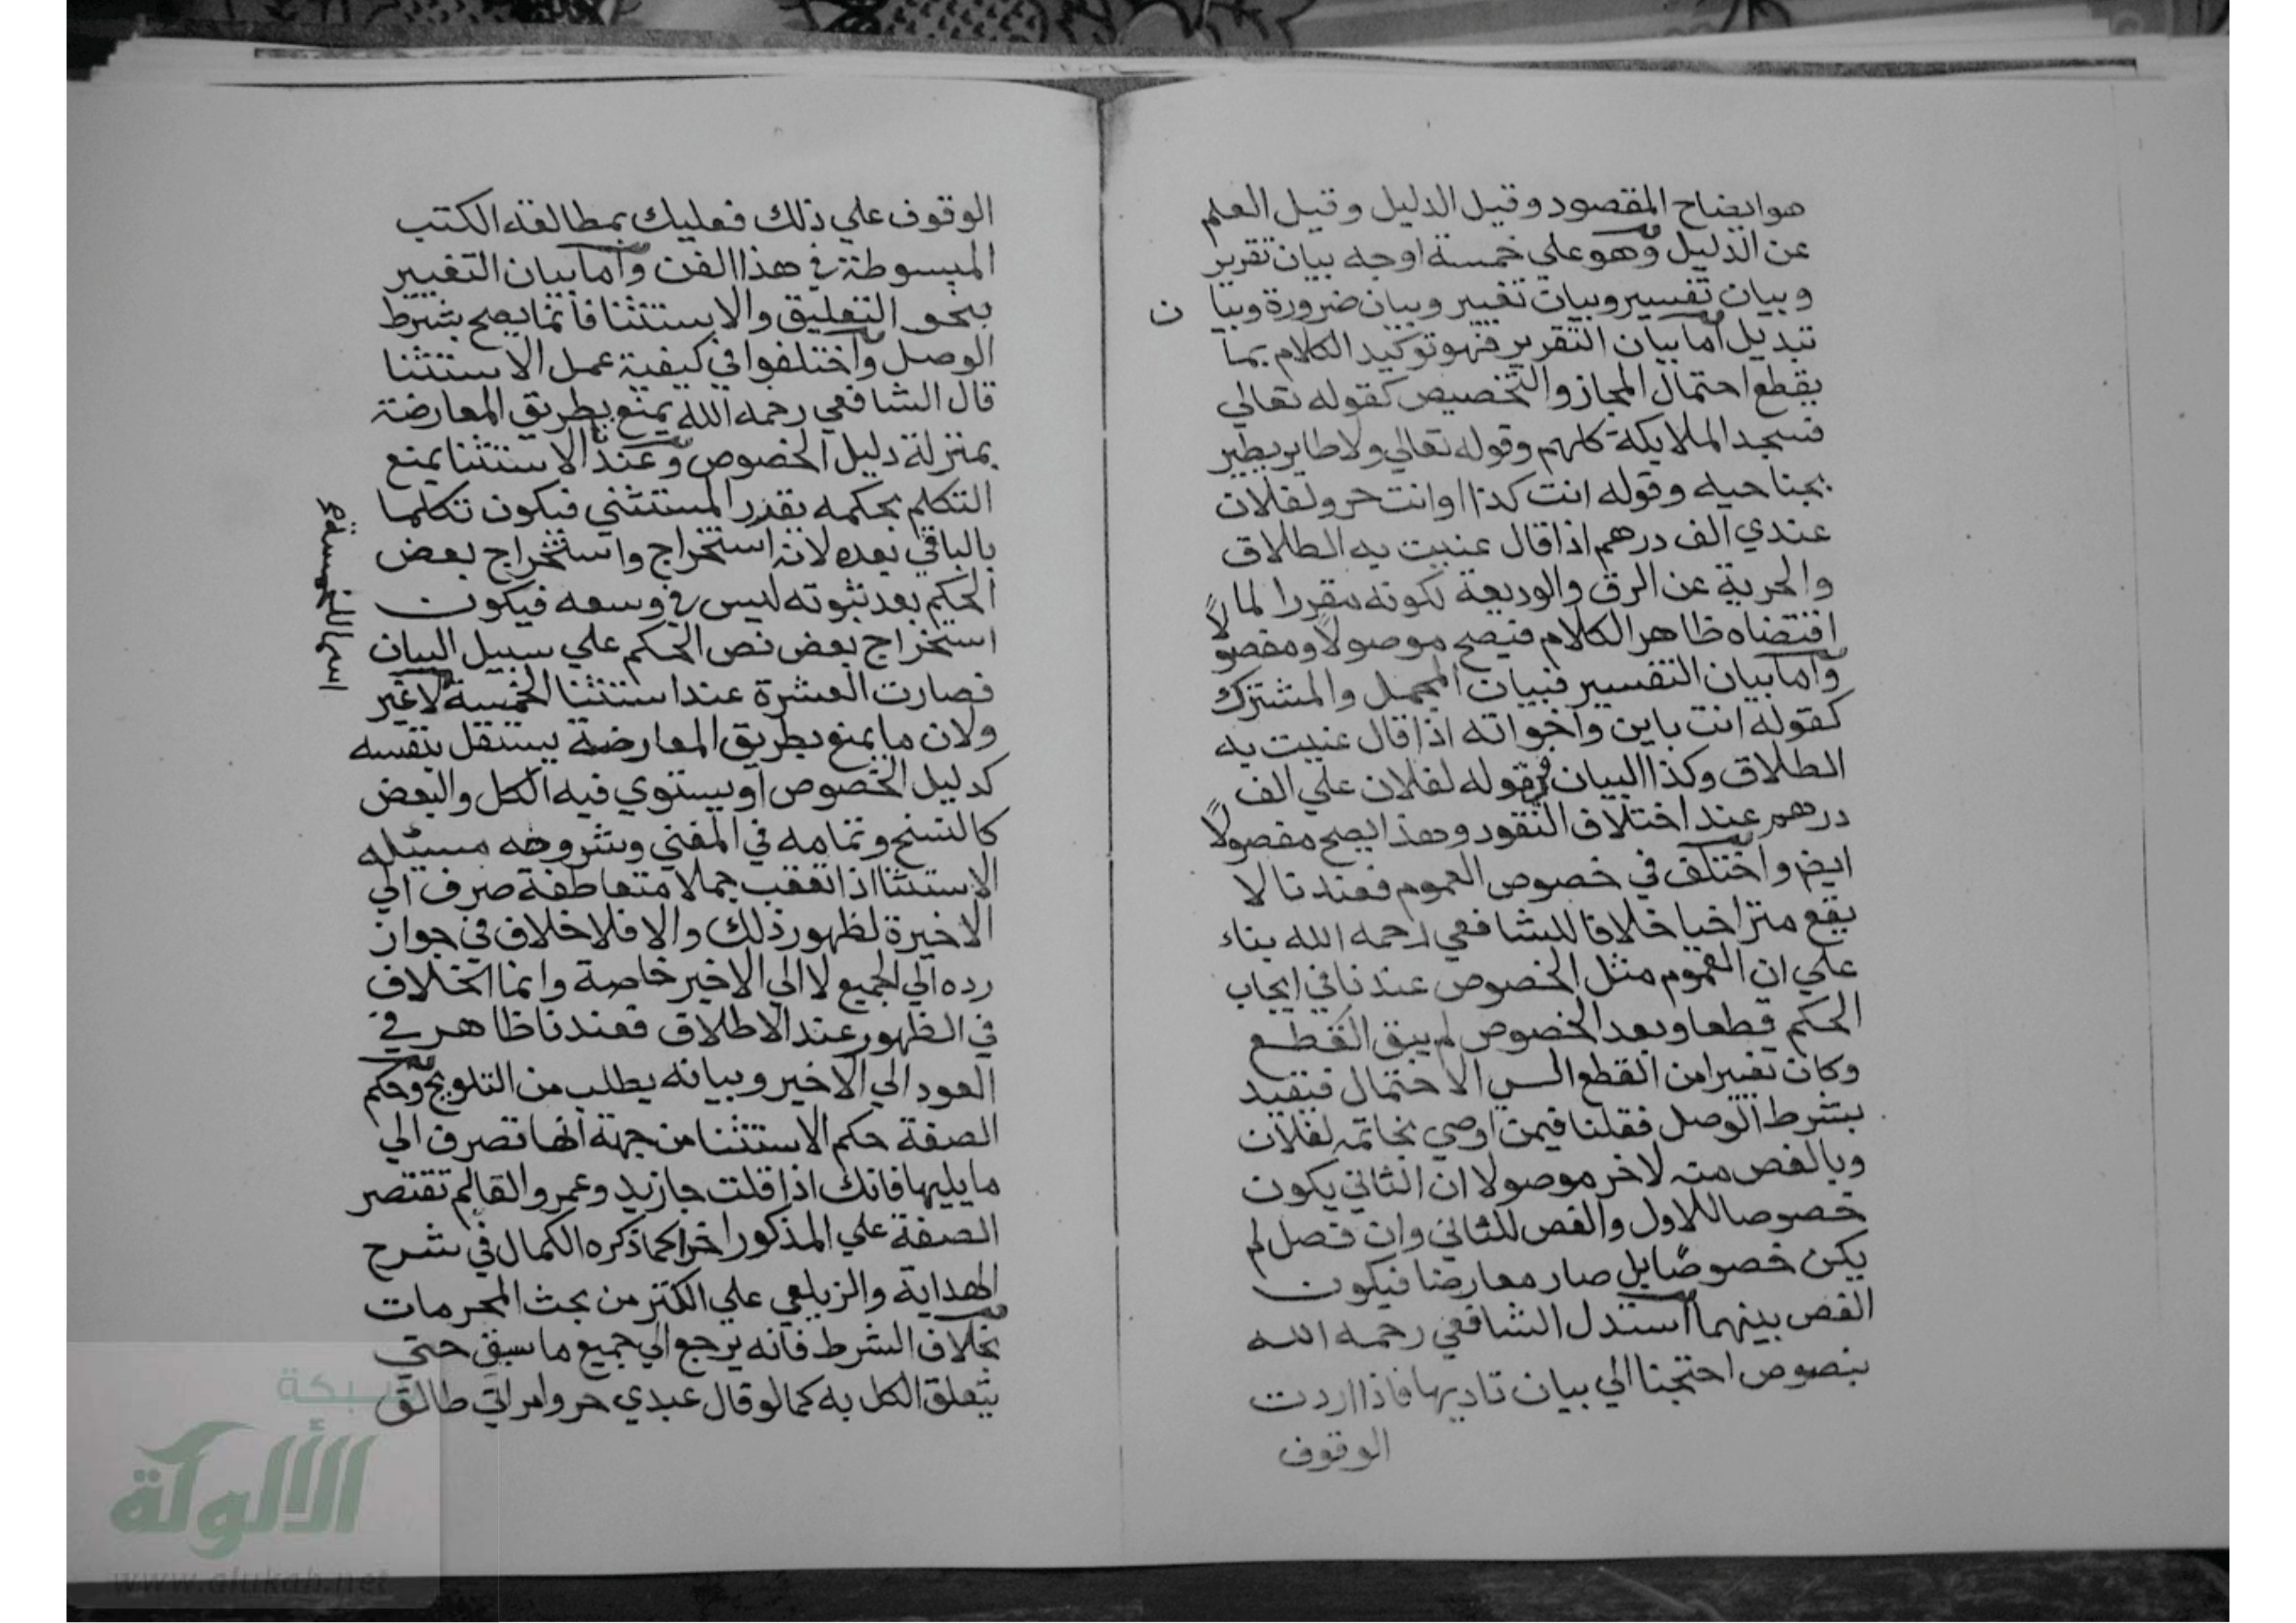 هو ايضاح المقصود وقيل الدليل وقيل العلم
عن الدليل وهو علي خمسة اوجه بيان تقرير
وبيان تفسير وبيان تغيير وبيان ضرورة وبيا ن
تبديل اما بيان التقرير فهو توكيد الكلام بما
يقطع احتمال المجاز والتخصيص كقوله تعالي
فسجد الملايكة كلهم وقوله تعالي ولا طاير يطير
بجناحيه وقوله انت كذا او انت حر ولفلان
عندي الف درهم اذا قال عنيت به الطلاق
والحرية عن الرق والوديعة لكونه مقررا لما
اقتضاه ظاهر الكلام فيصح موصولا ومفصولاً
واما بيان التفسير فبيان المجمل والمشترك
كقوله انت باين واخواته اذا قال عنيت به
الطلاق وكذا البيان في قوله لفلان علي الف
درهم عند اختلاف النقود وهذا يصح مفصولاً
ايض واختلف في خصوص العموم فعندنا لا
يقع متراخيا خلافا للشافعي رحمه الله بناء
علي ان العموم مثل الخصوص عندنا في ايجاب
الحكم قطعا وبعد الخصوص لم يبق القطع
وكان تغييرا من القطع الي الاحتمال فيقيد
بشرط الوصل فقلنا فيمن اوصي بخاتمه لفلان
وبالفص منه لاخر موصولا ان الثاني يكون
خصوصا للاول والفص للثاني وان فصل لم
يكن خصوصًا بل صار معارضا فيكون
الفص بينهما استدل الشافعي رحمه الله
بنصوص احتجنا الي بيان تاديها فاذا اردت
الوقوف
الوقوف علي ذلك فعليك بمطالعة الكتب
المبسوطة في هذا الفن واما بيان التغيير
بنحو التعليق والاستثنا فانما يصح بشرط
الوصل واختلفوا في كيفية عمل الاستثنا
قال الشافعي رحمه الله يمنع بطريق المعارضة
بمنزلة دليل الخصوص وعندنا الاستثنا يمنع
التكلم بحكمه بقدر المستثني فيكون تكلما
بالباقي بعده لانه استخراج واستخراج بعض
الحكم بعد ثبوته ليس في وسعه فيكون
استخراج بعض نص الحكم علي سبيل البيان
فصارت العشرة عند استثنا الخمسة لا غير
ولان ما يمنع بطريق المعارضة يستقل بنفسه
كدليل الخصوص او يستوي فيه الكل والبعض
كالنسخ وتمامه في المغني وشروحه مسيله
الاستثنا اذا تعقب جملا متعاطفة صرف الي
الاخيرة لظهور ذلك والا فلا خلاف في جواز
رده الي الجميع لا الي الاخير خاصة وانما الخلاف
في الظهور عند الاطلاق فعندنا ظاهر في
العود الي الاخير وبيانه يطلب من التلويح وحكم
الصفة حكم الاستثنا من جهة انها تصرف الي
ما يليها فانك اذا قلت جا زيد وعمرو القالم تقتصر
الصفة علي المذكور اخرا كما ذكره الكمال في شرح
الهداية والزيلعي علي الكنز من بحث المحرمات
بخلاف الشرط فانه يرجع الي جميع ما سبق حتي
يتعلق الكل به كما لو قال عبدي حر وامراتي طالق
شبكة
الألوكة
www.alukah.net